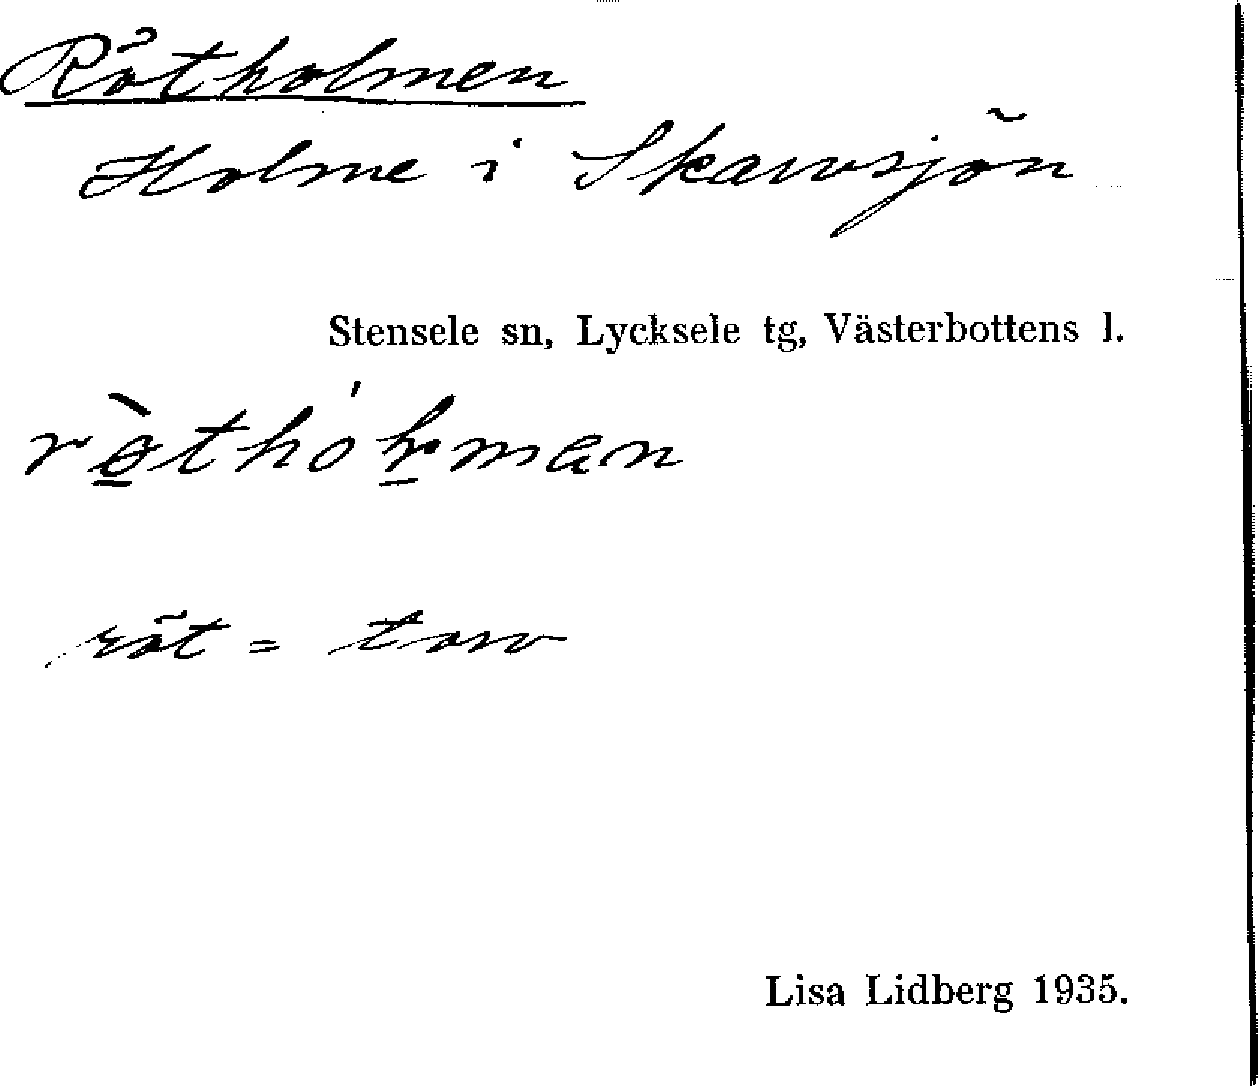 Rötholmen
Holme i Skarvsjön
Stensele sn, Lycksele tg, Västerbottens l.
röt = torv
Lisa Lidberg 1935.